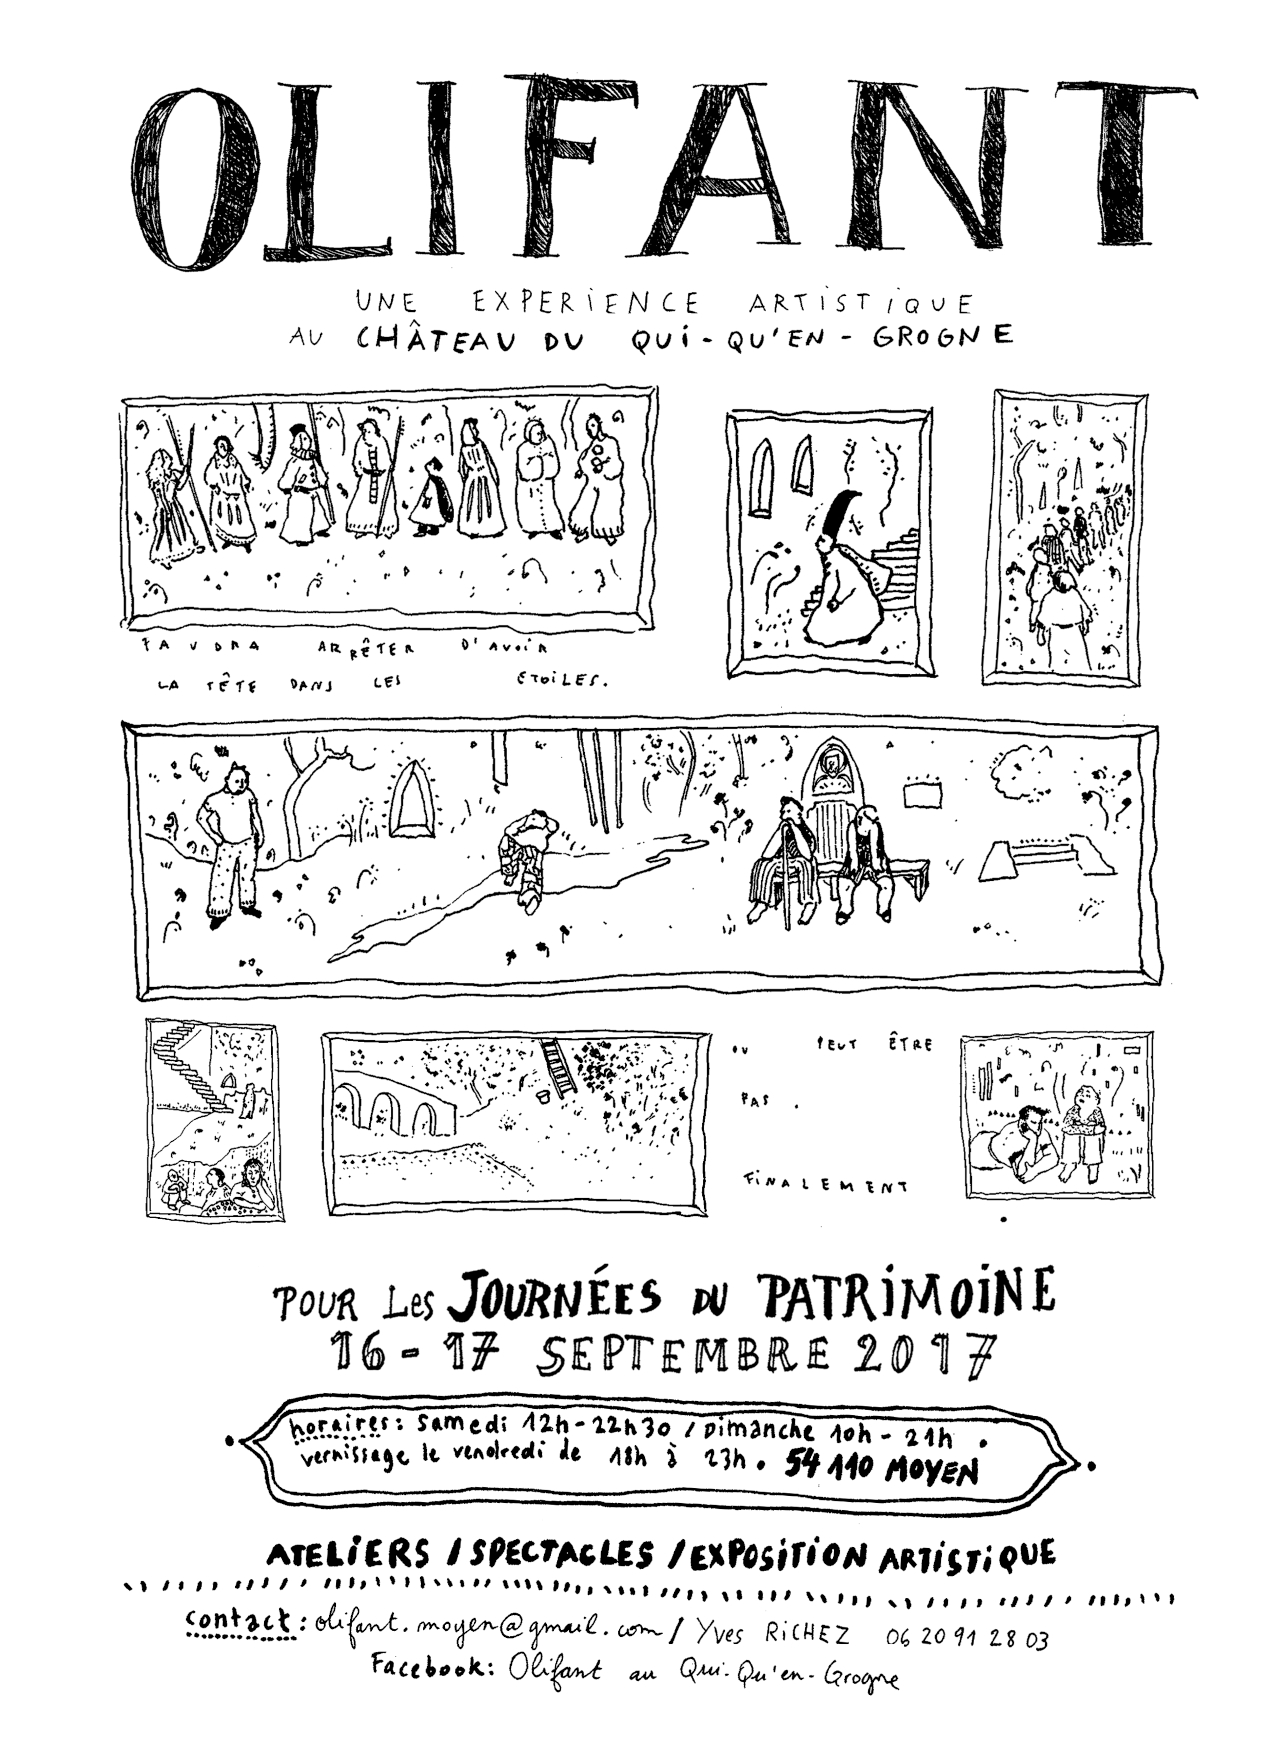 OLIFANT
UNE EXPERIENCE ARTISTIQUE
AU CHÂTEAU DU QUI-QU'EN-GROGNE
FAUDRA ARRÊTER D'AVOIR
LA TÊTE DANS LES ETOILES.
OU PEUT ÊTRE
PAS .
FINALEMENT
POUR Les JOURNÉES DU PATRIMOINE
16-17 SEPTEMBRE 2017
horaires: samedi 12h-22h30 / Dimanche 10h-21h .
vernissage le vendredi de 18h à 23h. 54110 MOYEN
ATELIERS / SPECTACLES / EXPOSITION ARTISTIQUE
contact: olifant.moyen@gmail.com / Yves RICHEZ 06 20 91 28 03
Facebook: Olifant au Qui-Qu'en-Grogne